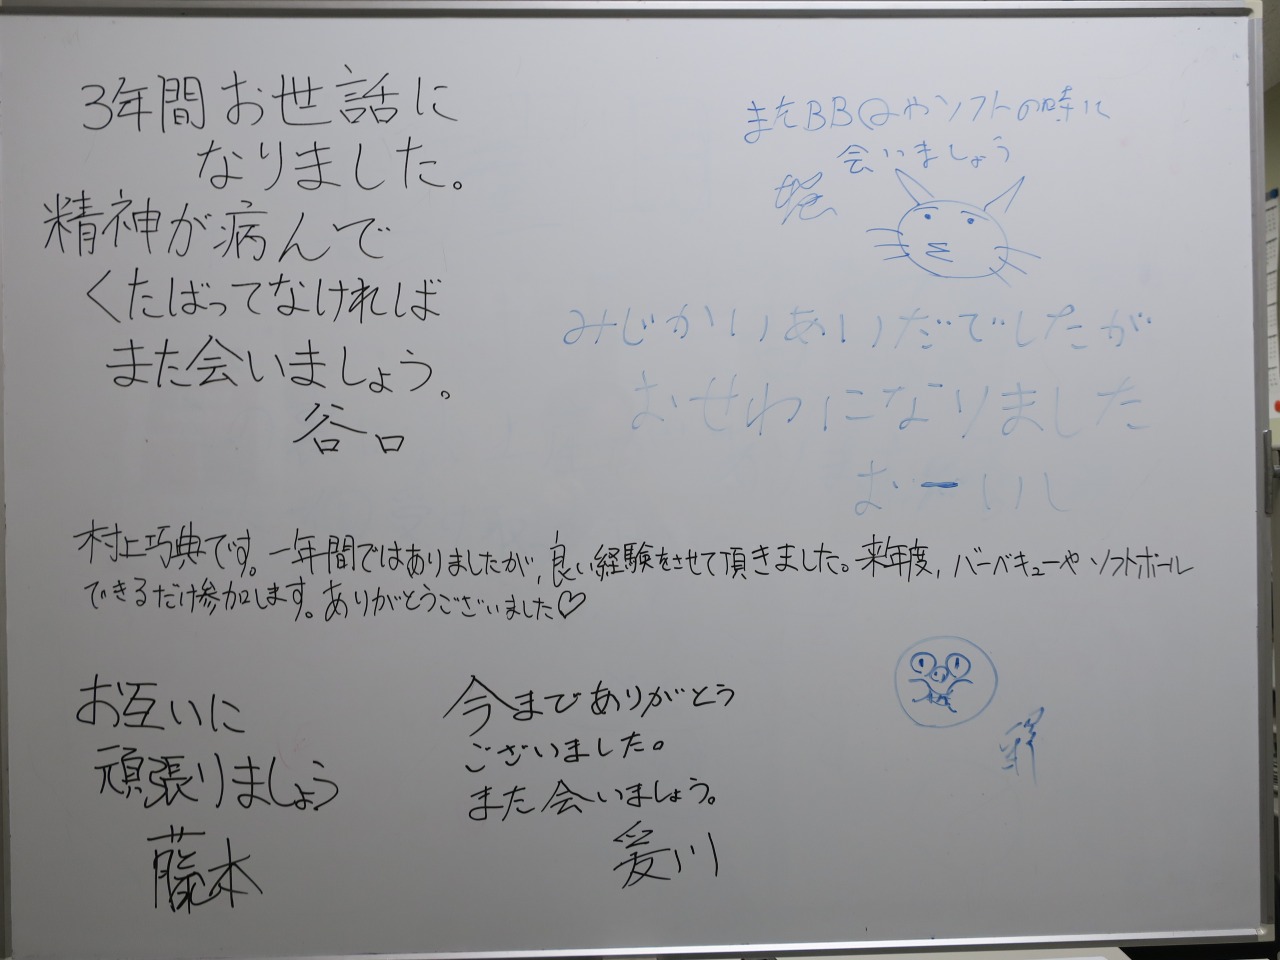 3年間お世話に
なりました。
精神が病んで
くたばってなければ
また会いましょう。
谷口
またBBQやソフトの時に
会いましょう
堀
みじかいあいだでしたが
おせわになりました
おーいし
村上巧典です。一年間ではありましたが、良い経験をさせて頂きました。来年度、バーベキューやソフトボール
できるだけ参加します。ありがとうございました♡
お互いに
頑張りましょう
藤本
今までありがとう
ございました。
また会いましょう。
爰川